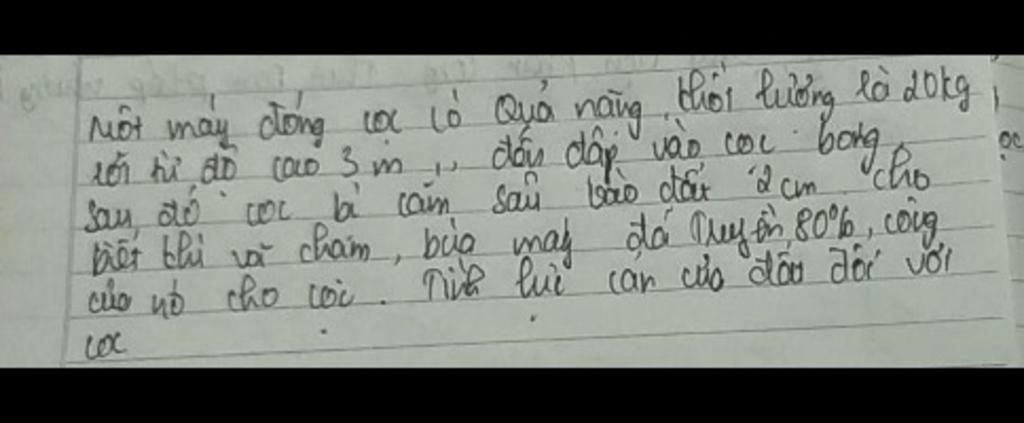 Một máy đóng cọc có quả nặng khối lượng là 20kg
rơi từ độ cao 3 m đến đập vào cọc bong
sau đó cọc bị cắm sâu vào đất 2 cm cho
biết khi va chạm, búa máy đã truyền 80%, công
của nó cho cọc. Tính lực cản của đất đối với
cọc